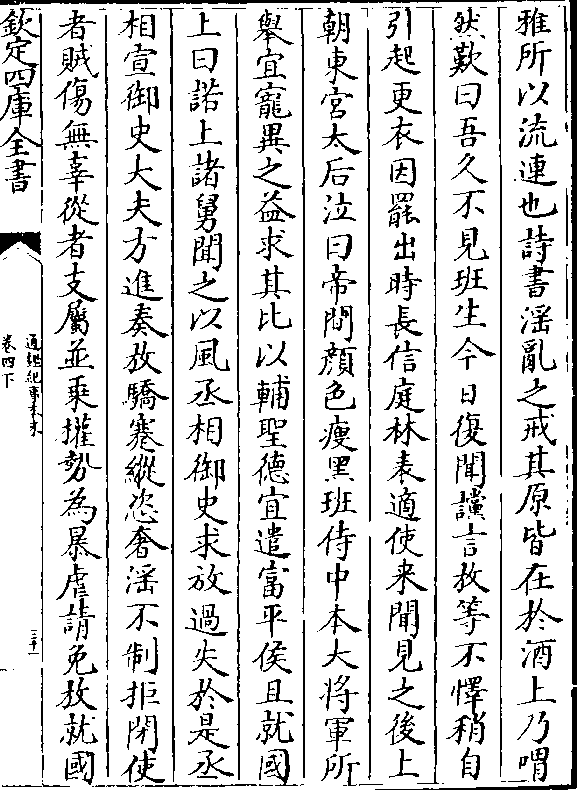 雅所以流連也詩書淫亂之戒其原皆在於酒上乃喟
然歎曰吾久不見班生今日復聞讜言放等不懌稍自
引起更衣因罷出時長信庭林表適使来聞見之後上
朝東宮太后泣曰帝間顔色瘦黑班侍中本大將軍所
舉宜寵異之益求其比以輔聖德宜遣富平侯且就國
上曰諾上諸舅聞之以風丞相御史求放過失於是丞
相宣御史大夫方進奏放驕蹇縱恣奢淫不制拒閉使
者賊傷無辜從者支屬並乘權勢為暴虐請免放就國
欽定四庫全書
通鑑紀事本末
卷四下
三十一